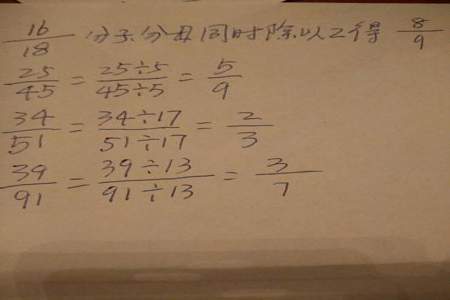 16/18 分子分母同时除以2得 8/9
25/45 = 25÷5/45÷5 = 5/9
34/51 = 34÷17/51÷17 = 2/3
39/91 = 39÷13/91÷13 = 3/7